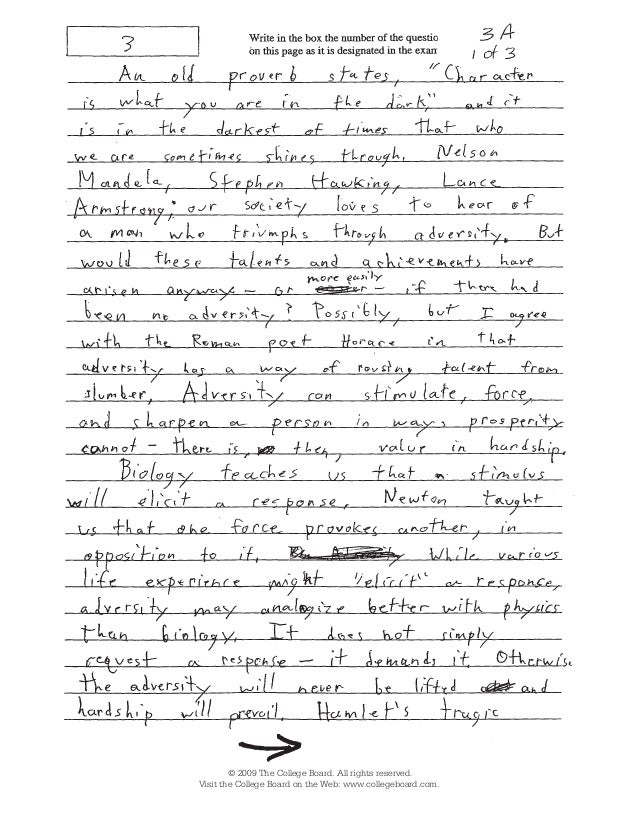 3
Write in the box the number of the questio
on this page as it is designated in the exam
3A
1 of 3
An old proverb states, "Character
is what you are in the dark," and it
is in the darkest of times that who
we are sometimes shines through. Nelson
Mandela, Stephen Hawking, Lance
Armstrong; our society loves to hear of
a man who triumphs through adversity. But
would these talents and achievements have
more easily
arisen anyway – or – if there had
been no adversity? Possibly, but I agree
with the Roman poet Horace in that
adversity has a way of rousing talent from
slumber. Adversity can stimulate, force,
and sharpen a person in ways prosperity
cannot – there is, then, value in hardship.
Biology teaches us that a stimulus
will elicit a response, Newton taught
us that one force provokes another, in
opposition to it. While various
life experience might "elicit" a responce,
adversity may analogize better with physics
than biology. It does not simply
request a response – it demands it. Otherwise
the adversity will never be lifted and
hardship will prevail. Hamlet's tragic
© 2009 The College Board. All rights reserved.
Visit the College Board on the Web: www.collegeboard.com.